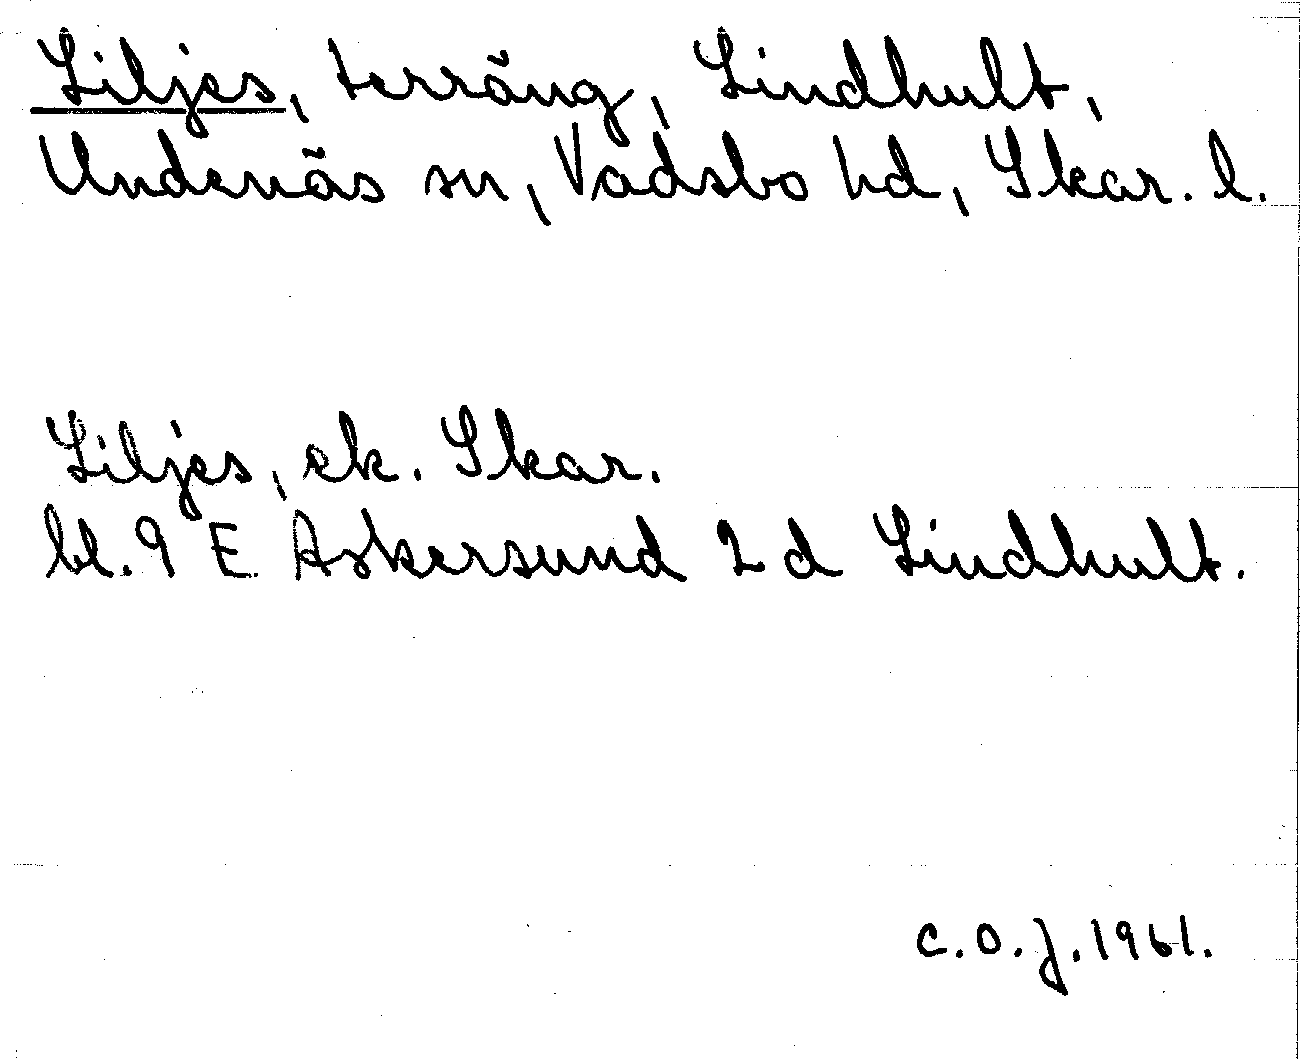 Liljes, terräng, Lindhult,
Undenäs sn, Vadsbo hd, Skar. l.
Liljes, ek. Skar.
bl. 9 E Askersund 2 d Lindhult.
C.O.J. 1961.